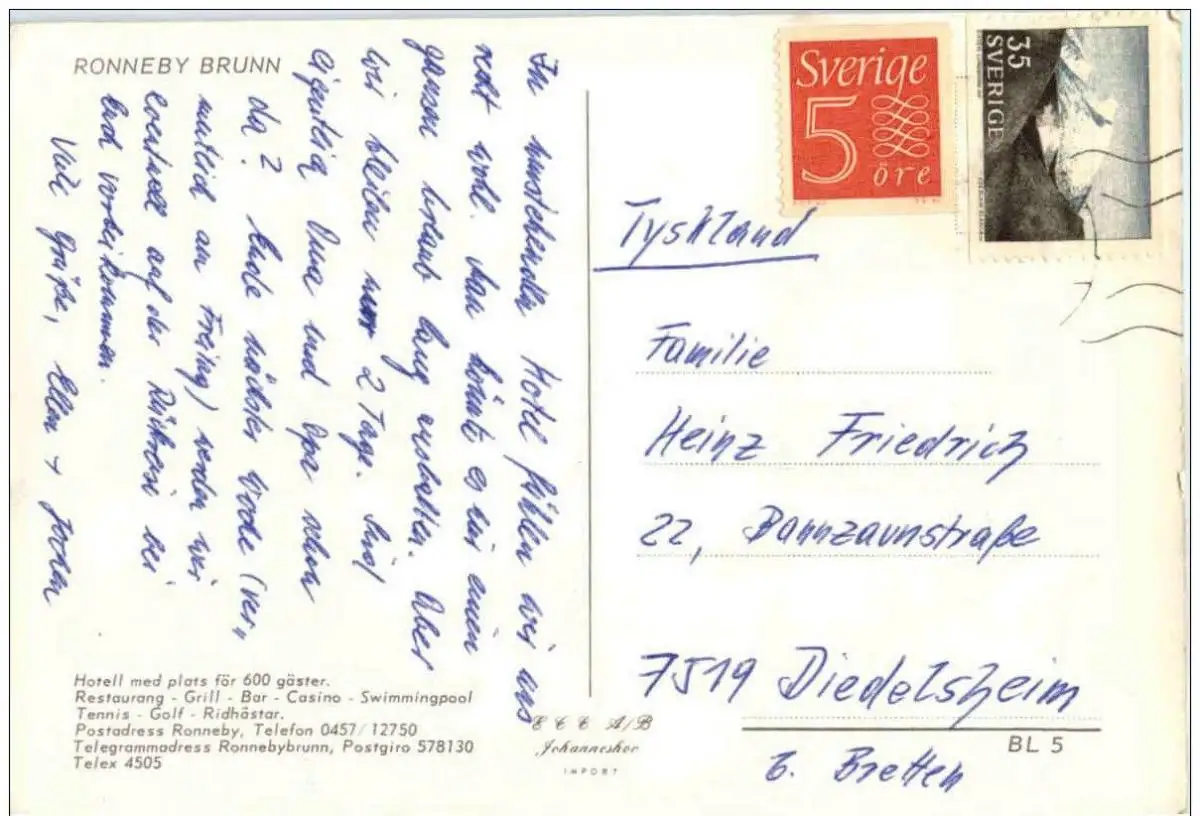 RONNEBY BRUNN
In umstehenden Hotel fühlen wir uns
recht wohl. Man könnte es hier einen
ganzen Urlaub lang aushalten. Aber
wir bleiben nur 2 Tage. Sind
eigentlich Oma und Opa schon
da? Ende nächster Woche (ver-
mutlich am Freitag) werden wir
eventuell auf der Rückreise bei
Euch vorbeikommen.
Viele Grüße, Ellen +
Hotell med plats för 600 gäster.
Restaurang - Grill - Bar - Casino - Swimmingpool
Tennis - Golf - Ridhästar.
Postadress Ronneby, Telefon 0457/12750
Telegrammadress Ronnebybrunn, Postgiro 578130
Telex 4505
A/B
Johanneshov
IMPORT
Sverige
5
öre
35
SVERIGE
Tyskland
Familie
Heinz Friedrich
22, Bannzaunstraße
7519 Diedelsheim
b. Bretten
BL 5